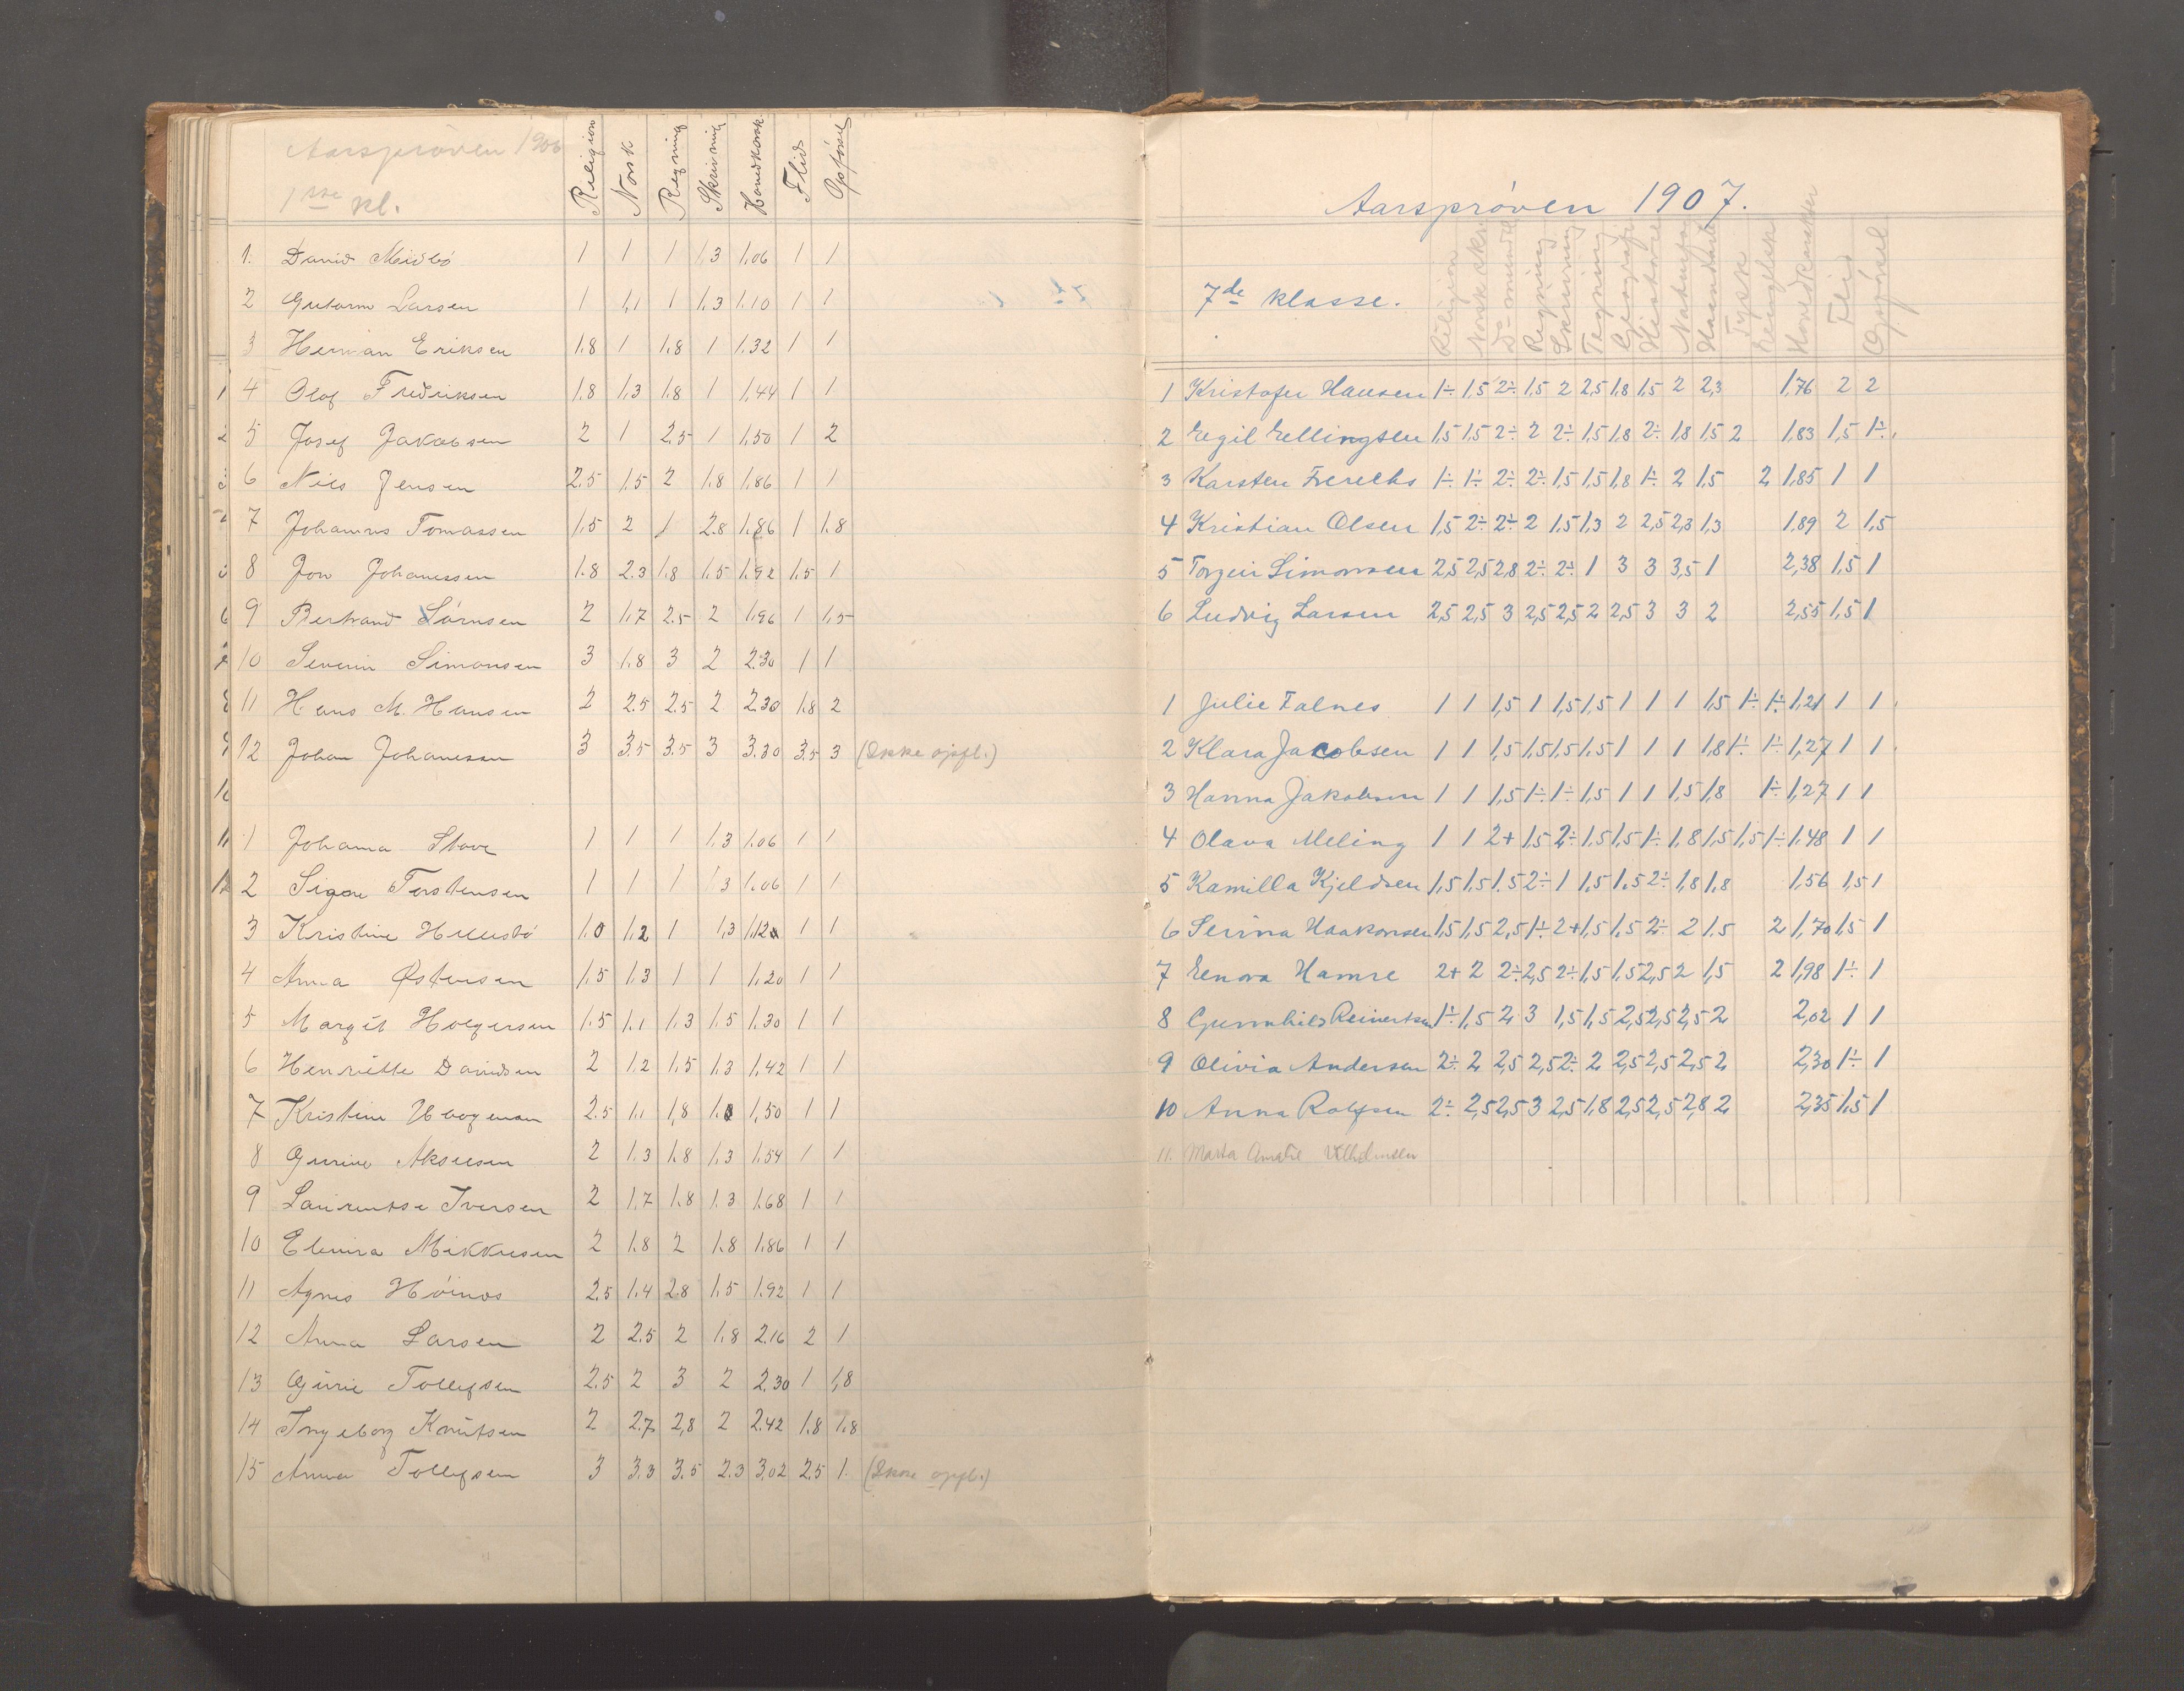 Aarsprøven 1906
1ste kl.
Religion Norsk Regning Skrivning Hovedkarak. Flid Opførsel
1. David Midbø 1 1 1 1,3 1,06 1 1
2 Guttorm Larsen 1 1,1 1 1,3 1,10 1 1
3 Herman Eriksen 1.8 1 1.8 1 1.32 1 1
1 4 Olaf Fredriksen 1.8 1,3 1.8 1 1,44 1 1
2 5 Josef Jakobsen 2 1 2.5 1 1,50 1 2
3 6 Nils Jensen 2.5 1.5 2 1.8 1,86 1 1
7 Johannes Tomassen 1,5 2 1 2.8 1.86 1 1.8
8 Jon Johanessen 1.8 2.3 1.8 1.5 1.92 1.5 1
6 9 Bertrand Sørnsen 2 1,7 2.5 2 1,96 1 1,5
10 Severin Simonsen 3 1.8 3 2 2.30 1 1
8 11 Hans M. Hansen 2 2.5 2.5 2 2.30 1.8 2
9 12 Johan Johanesen 3 3.5 3.5 3 3.30 3.5 3 (Ikke opfl.)
10
11 1 Johanna Stave 1 1 1 1,3 1,06 1 1
12 2 Signe Torstensen 1 1 1 1 3 1.06 1 1
3 Kristine 1.0 1,2 1 1,3 1,12 1 1
4 Anna Østensen 1,5 1,3 1 1 1,20 1 1
5 Margit Holgersen 1.5 1,1 1,3 1,5 1,30 1 1
6 Henriette Davidsen 2 1.2 1,5 1,3 1,42 1 1
7 Kristine Hbogman 2.5 1,1 1,8 1,8 1,50 1 1
8 Gurine Akselsen 2 1.3 1.8 1.3 1.54 1 1
9 Laurentse Iversen 2 1.7 1.8 1.3 1.68 1 1
10 Elmina Mikkelsen 2 1.8 2 1.8 1.86 1 1
11 Agnes Høines 2.5 1.4 2.8 1.5 1.92 1 1
12 Anna Larsen 2 2.5 2 1.8 2.16 2 1
13 Gurie Tollefsen 2.5 2 3 2 2.30 1 1,8
14 Ingeborg Knutsen 2 2.7 2,8 2 2.42 1.8 1.8
15 Anna Tollefsen 3 3.3 3.5 2.3 3,02 2.5 1. (Ikke opfl.)
Aarsprøven 1907.
7de klasse.
Religion Norsk skr. Do mundtl. Regning Skrivning Tegning Geografi Historie Naturkunds. Haandarb. Tysk Engelsk Hovedkarakter Flid Opførsel
1 Kristofer Hansen 1÷ 1,5 2÷ 1,5 2 2,5 1,8 1,5 2 2,3 1,76 2 2
2 Eegil Eellingsen 1,5 1,5 2÷ 2 2÷ 1,5 1,8 2÷ 1,8 1,5 2 1,83 1,5 1÷.
3 Karsten Frerechs 1÷ 1÷ 2÷ 2÷ 1,5 1,5 1,8 1÷ 2 1,5 2 1,85 1 1
4 Kristian Olsen 1,5 2÷ 2÷ 2 1,5 1,3 2 2,5 2,3 1,3 1,89 2 1,5
5 Torgeir Simonsen 2,5 2,5 2,8 2÷ 2÷ 1 3 3 3,5 1 2,38 1,5 1
6 Ludvig Larsen 2,5 2,5 3 2,5 2,5 2 2,5 3 3 2 2,55 1,5 1
1 Julie Falnes 1 1 1,5 1 1,5 1,5 1 1 1 1,5 1÷ 1÷ 1,21 1 1
2 Klara Jacobsen 1 1 1,5 1,5 1,5 1,5 1 1 1 1,8 1÷ 1÷ 1,27 1 1
3 Hanna Jakobsen 1 1 1,5 1÷ 1÷ 1,5 1 1 1,5 1,8 1÷ 1,27 1 1
4 Olava Meling 1 1 2+ 1,5 2÷ 1,5 1,5 1÷ 1,8 1,5 1,5 1÷ 1,48 1 1
5 Kamilla Kjeldsen 1,5 1,5 1.5 2÷ 1 1,5 1.5 2÷ 1,8 1,8 1,56 1,5 1
6 Serina Haakonsen 1,5 1,5 2,5 1÷ 2+ 1,5 1,5 2÷ 2 1,5 2 1,70 1,5 1
7 Eenora Hamre 2+ 2 2÷ 2,5 2÷ 1,5 1,5 2,5 2 1,5 2 1,98 1÷ 1
8 Gunnhild Reinertsen 1÷ 1,5 2 3 1,5 1,5 2,5 2,5 2,5 2 2,02 1 1
9 Olivia Andersen 2÷ 2 2,5 2,5 2÷ 2 2,5 2,5 2,5 2 2,30 1÷ 1
10 Anna Rolfsen 2÷ 2,5 2,5 3 2,5 1,8 2,5 2,5 2,8 2 2,35 1,5 1
11. Marta Amalie Vilhelmsen